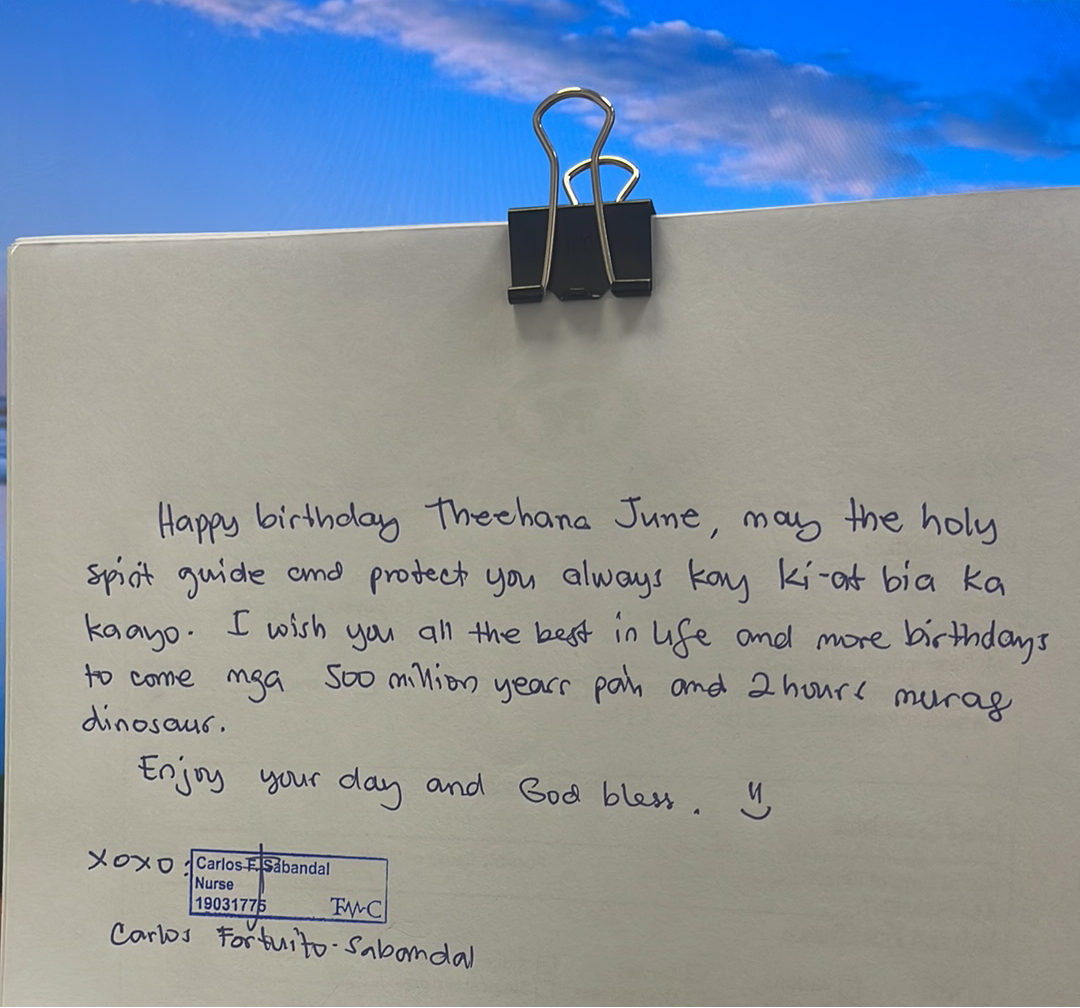 Happy birthday Theehana June, may the holy
spirit guide and protect you always kay ki-at bia ka
kaayo. I wish you all the best in life and more birthdays
to come mga 500 million years pah and 2 hours murag
dinosaur.
Enjoy your day and God bless.
xoxo:
Carlos F. Sabandal
Nurse
19031775
Carlos Fortuito-Sabandal